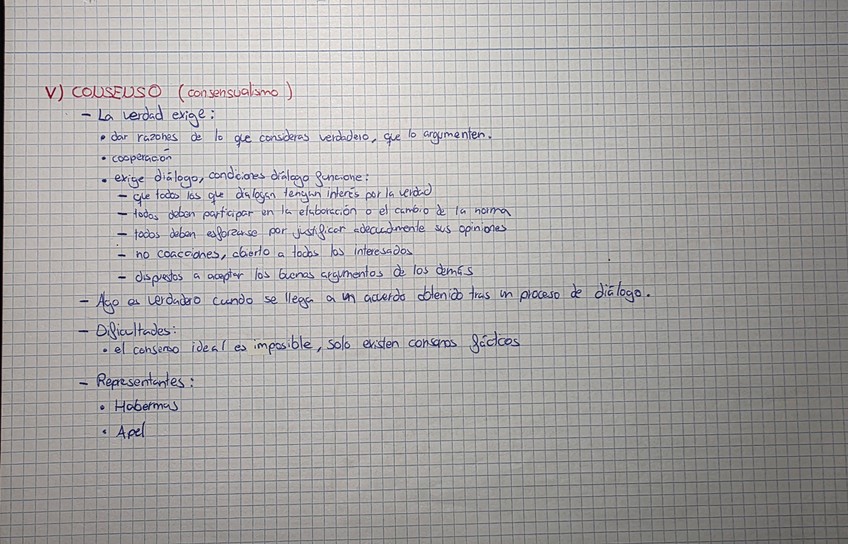 V) CONSENSO (consensualismo)
- La verdad exige:
• dar razones de lo que consideras verdadero, que lo argumenten.
• cooperación
• exige diálogo, condiciones diálogo funcione:
- que todos los que dialogan tengan interés por la verdad
- todos deben participar en la elaboración o el cambio de la norma
- todos deben esforzarse por justificar adecuadmente sus opiniones
- no coacciones, abierto a todos los interesados
- dispuestos a aceptar los buenos argumentos de los demás
- Ago es verdadero cundo se llega a un acuerdo obtenido tras un proceso de diálogo.
- Dificultades:
• el consenso ideal es imposible, solo existen consensos fácticos
- Representantes:
• Habermas
• Apel